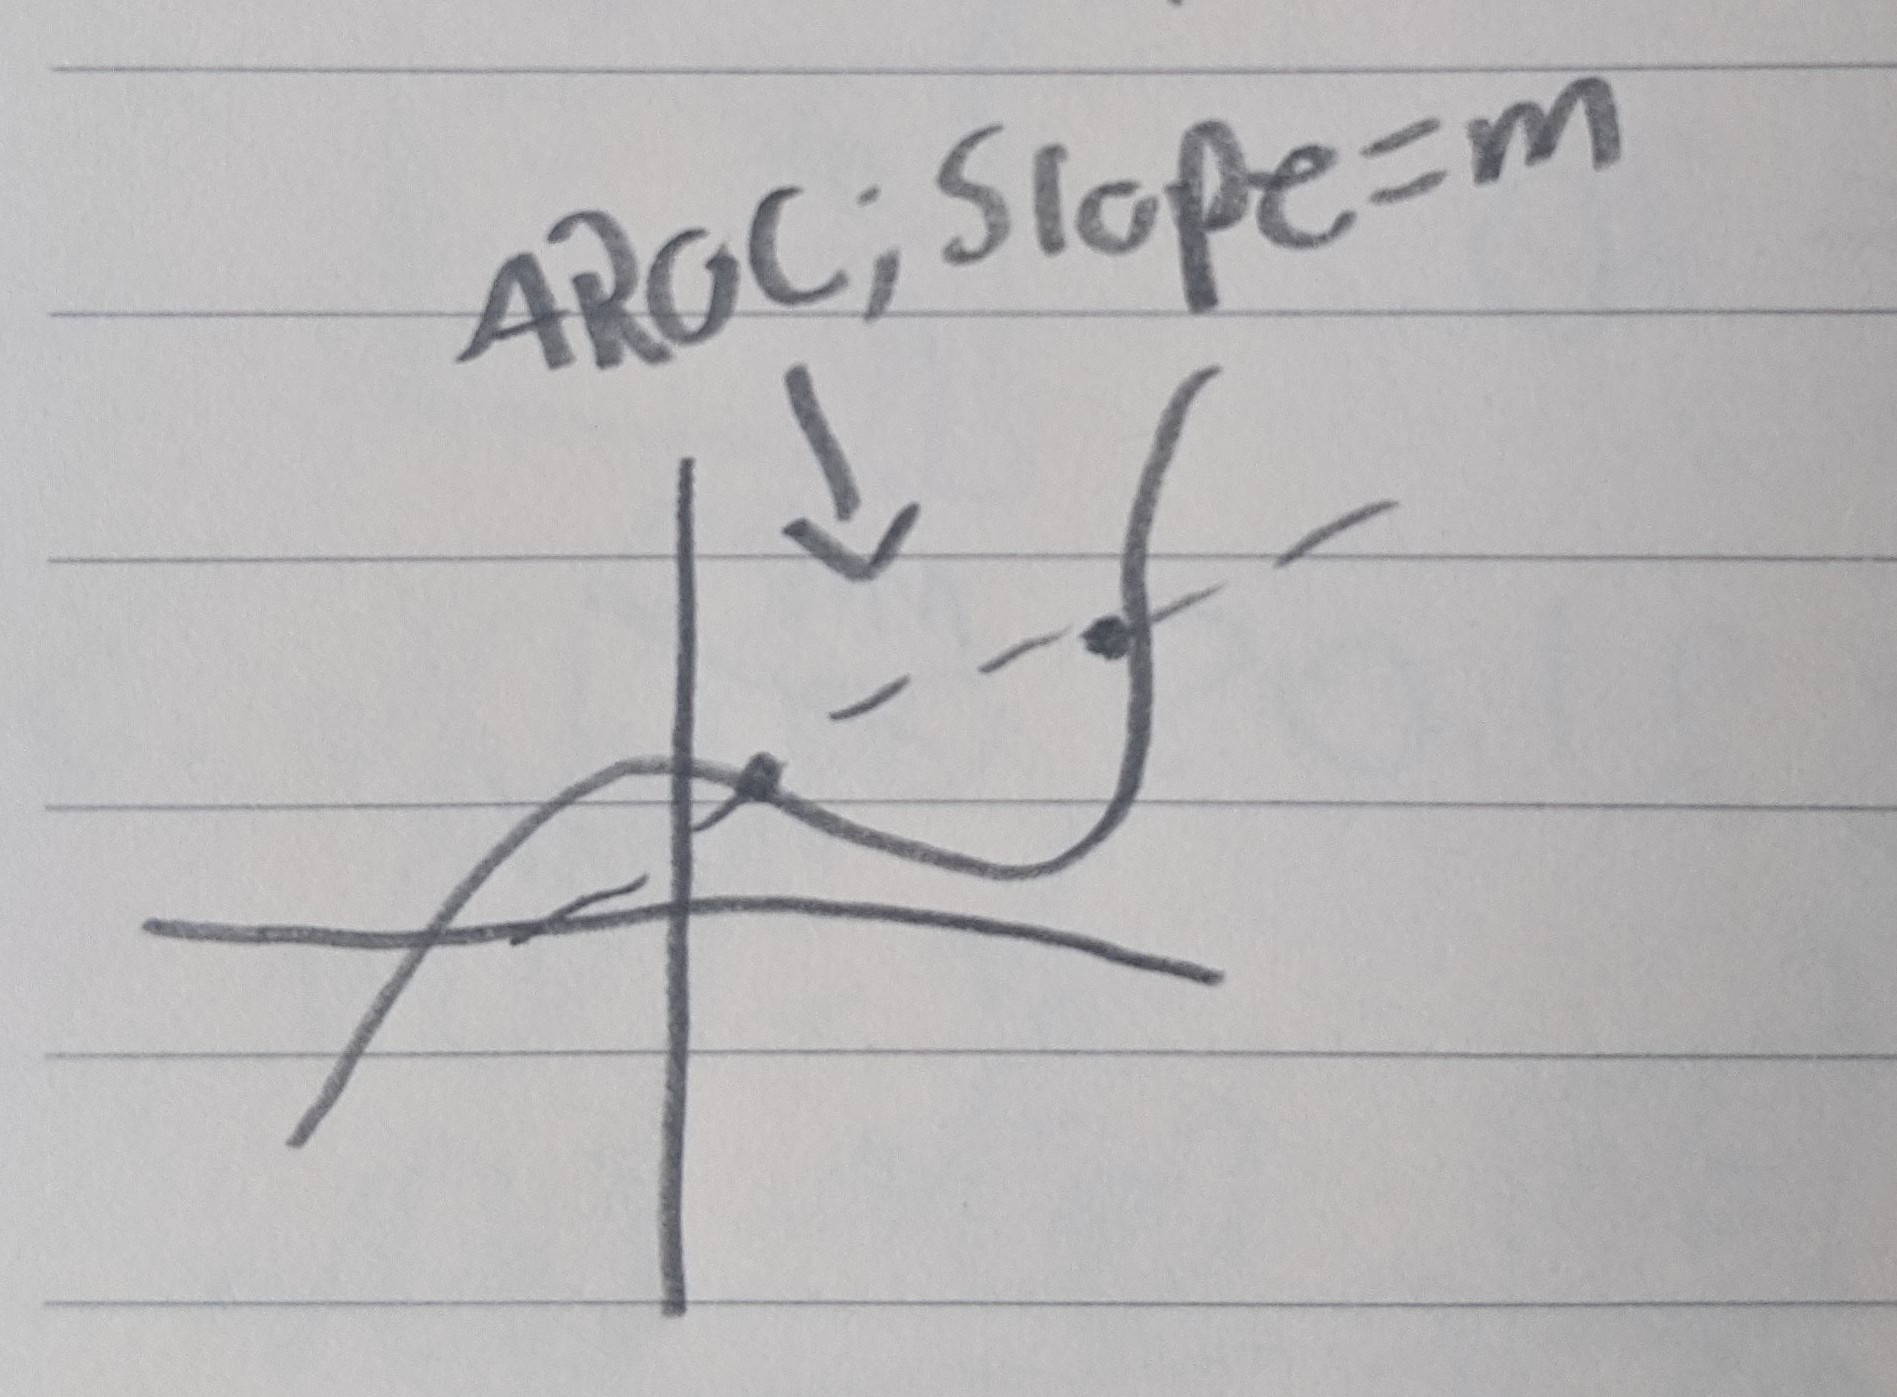 AROC; Slope=m